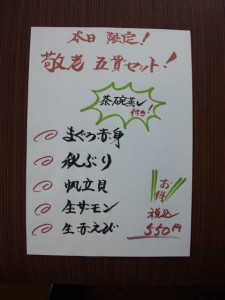 本日限定!
敬老五貫セット!
茶碗蒸し
付き!
まぐろ赤身
秋ぶり
帆立貝
生サーモン
生赤えび
お得
税込
550円